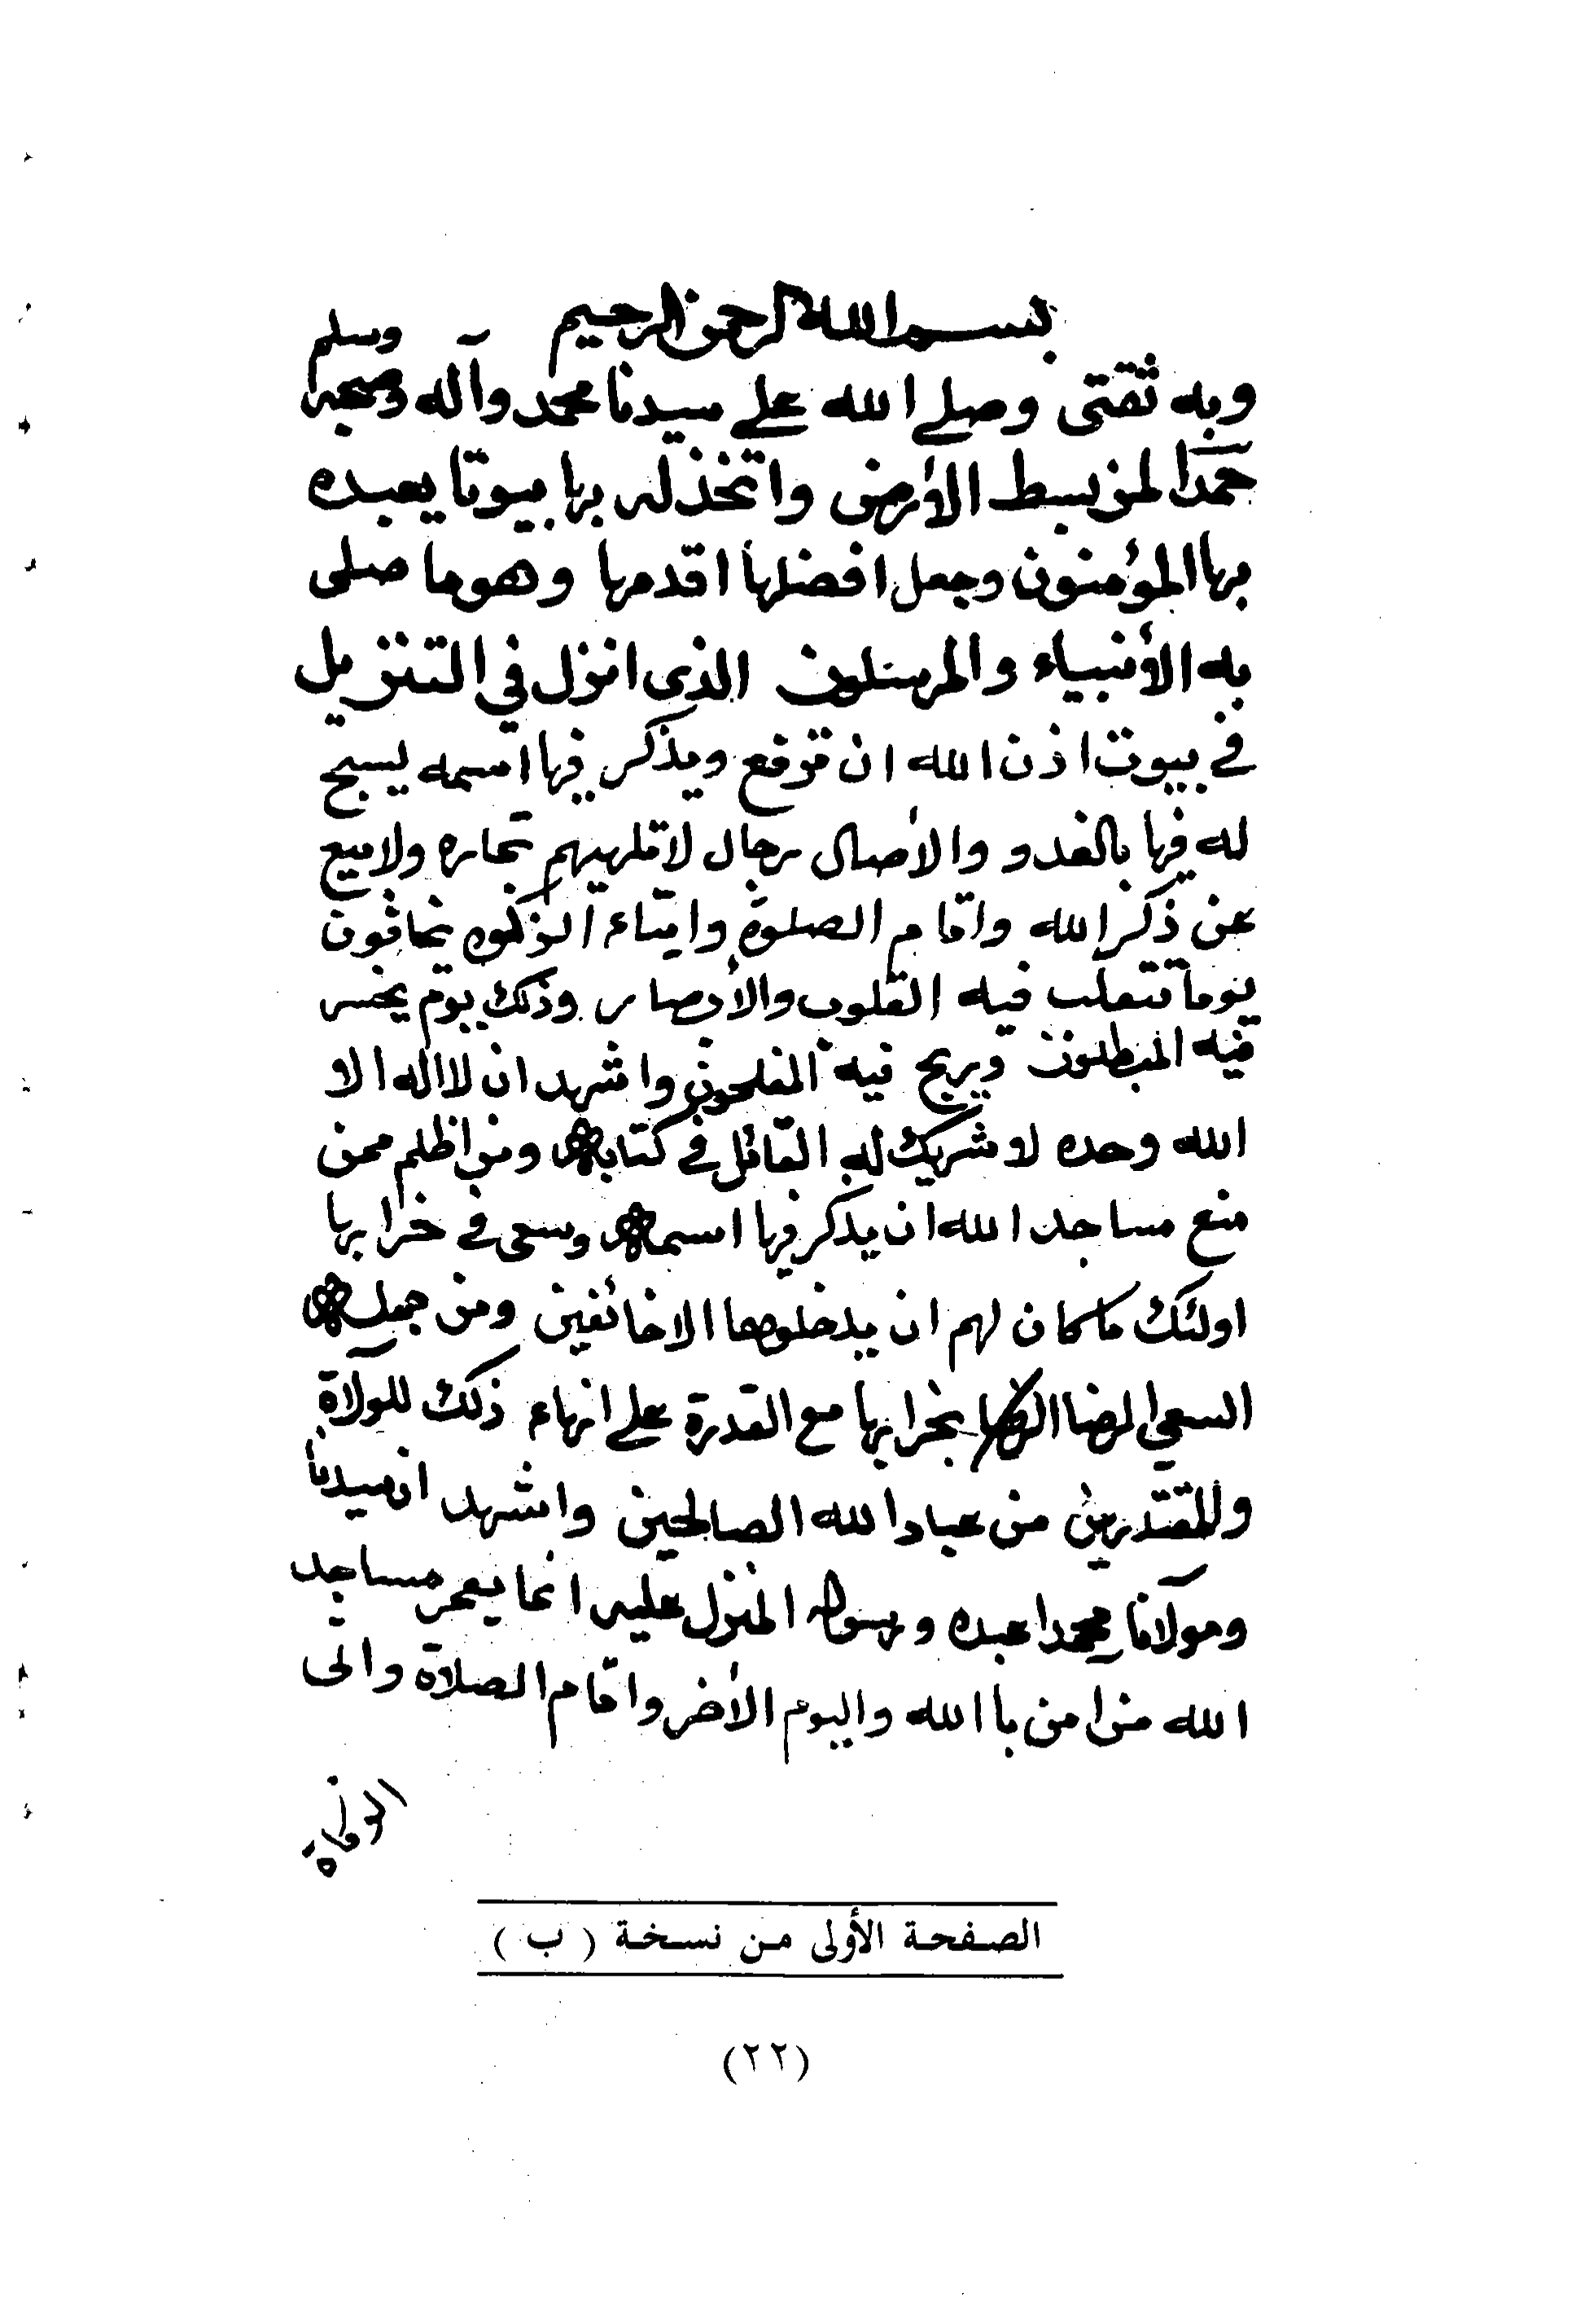 بسم الله الرحمن الرحيم
وبه ثقتى وصلى الله على سيدنا محمد وآله وصحبه وسلم
حمدا لمن بسط الأرض واتخذ له بها بيوتا يعبده
بها المؤمنون وجعل افضلها اقدمها وهو ما صلى
به الأنبياء والمرسلون الذى انزل في التنزيل
في بيوت اذن الله ان ترفع ويذكر فيها اسمه يسبح
له فيها بالغدو والأصال رجال لا تلهيهم تجارة ولا بيع
عن ذكر الله واقام الصلوة وايتاء الزكوة يخافون
يوما تتقلب فيه القلوب والأبصار وذلك يوم يخسر
فيه المبطلون ويربح فيه المفلحون واشهد ان لا اله الا
الله وحده لا شريك له القائل في كتابه ومن اظلم ممن
منع مساجد الله ان يذكر فيها اسمه وسعى في خرابها
اولئك ما كان لهم ان يدخلوها الا خائفين ومن جملة
السعي الرضا بخرابها مع القدرة على انهاء ذلك للولاة
وللمقتدرين من عباد الله الصالحين واشهد ان سيدنا
ومولانا محمدا عبده ورسوله المنزل عليه انما يعمر مساجد
الله من امن باالله واليوم الأخر واقام الصلاة واتى
الزكاة
الصفحة الأولى من نسخة ( ب )
(٢٢)